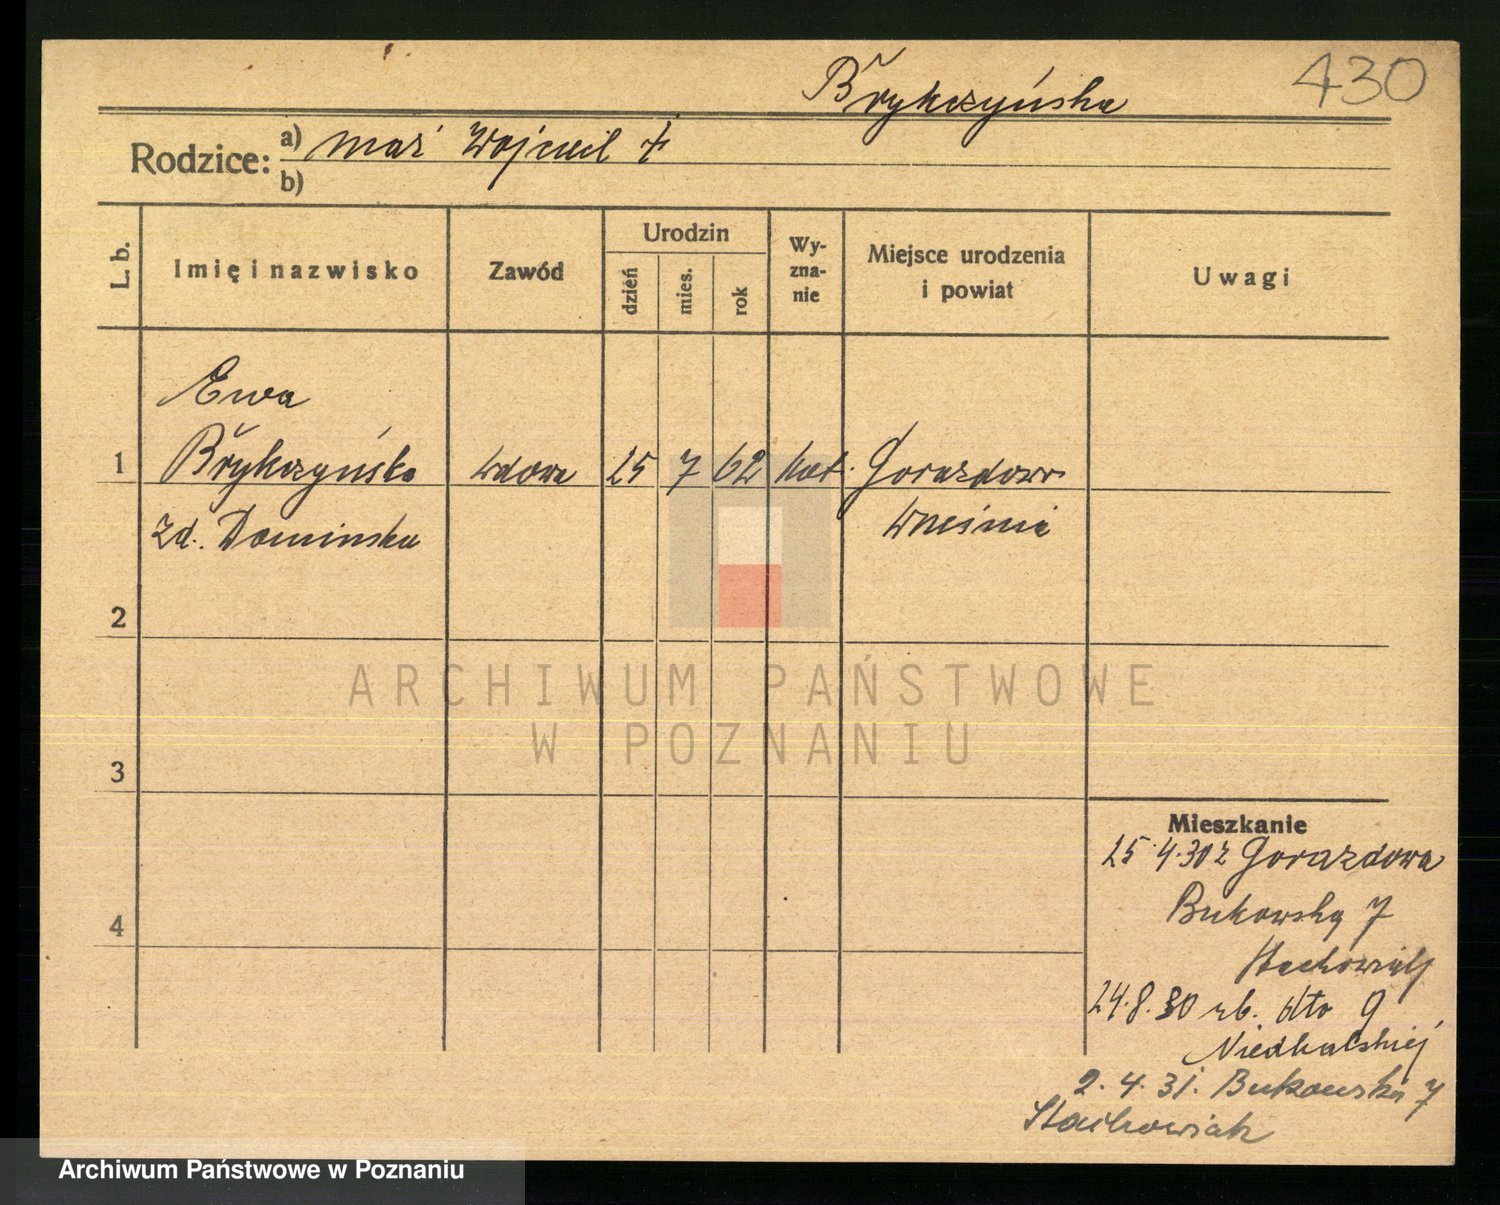 Brykczyńska 430
Rodzice: a) mąż Wojciech +
b)
L. b.
Imię i nazwisko
Zawód
Urodzin
dzień
mies.
rok
Wy-
zna-
nie
Miejsce urodzenia
i powiat
Uwagi
Ewa
1 Brykczyńska wdowa 25 7 62 kat. Gorazdowo
zd. Dominska Wrześnie
2
3
4
Mieszkanie
25.4.30 z Gorazdowa
Bukowska 7
Stachowiak
24.8.30 rb. dto 9
Niedbalskiej
2.4.31. Bukowska 7
Stachowiak
ARCHIWUM PAŃSTWOWE
W POZNANIU
Archiwum Państwowe w Poznaniu